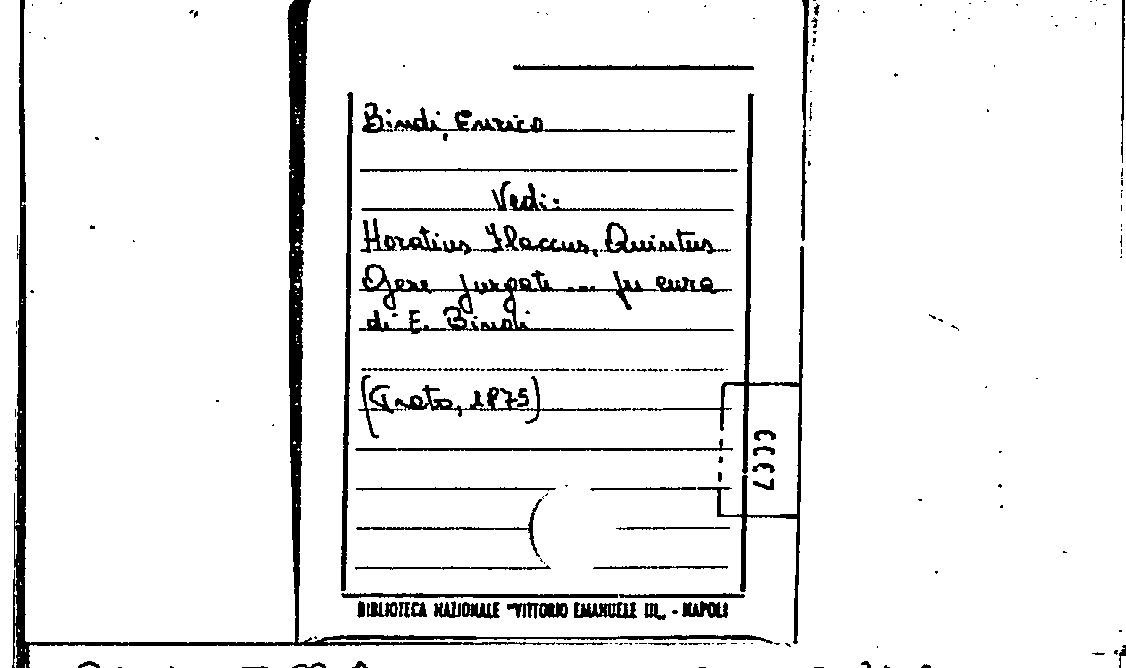 Bindi, Enrico
Vedi:
Horatius Flaccus, Quintus
Opere purgate ... per cura
di E. Bindi
(Prato, 1875)
BIBLIOTECA NAZIONALE "VITTORIO EMANUELE III„ - NAPOLI